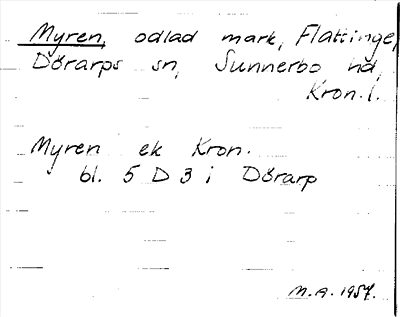 Myren, odlad mark, Flattinge,
Dörarps sn, Sunnerbo hd,
Kron. l.
Myren ek Kron.
bl. 5 D 3 i Dörarp
M.A. 1957.